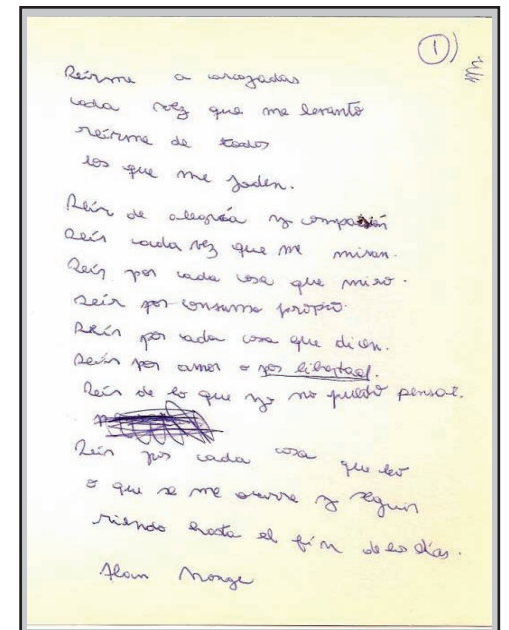 1)
Reírme a carcajadas
cada vez que me levanto
reírme de todos
los que me joden.
Reír de alegría y compasión
Reír cada vez que me miran.
Reír por cada cosa que miro.
Reír por consumo propio.
Reír por cada cosa que dicen.
Reír por amor o por libertad.
Reír de lo que yo no puedo pensar.
Reír por cada cosa que leo
o que se me ocurre y seguir
riendo hasta el fin de los días.
Alan Monge